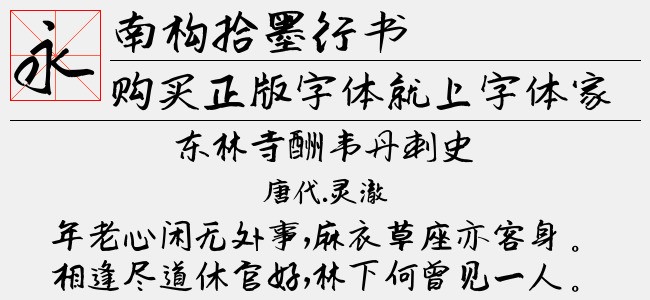 永
南构拾墨行书
购买正版字体就上字体家
东林寺酬韦丹刺史
唐代.灵澈
年老心闲无外事,麻衣草座亦容身。
相逢尽道休官好,林下何曾见一人。